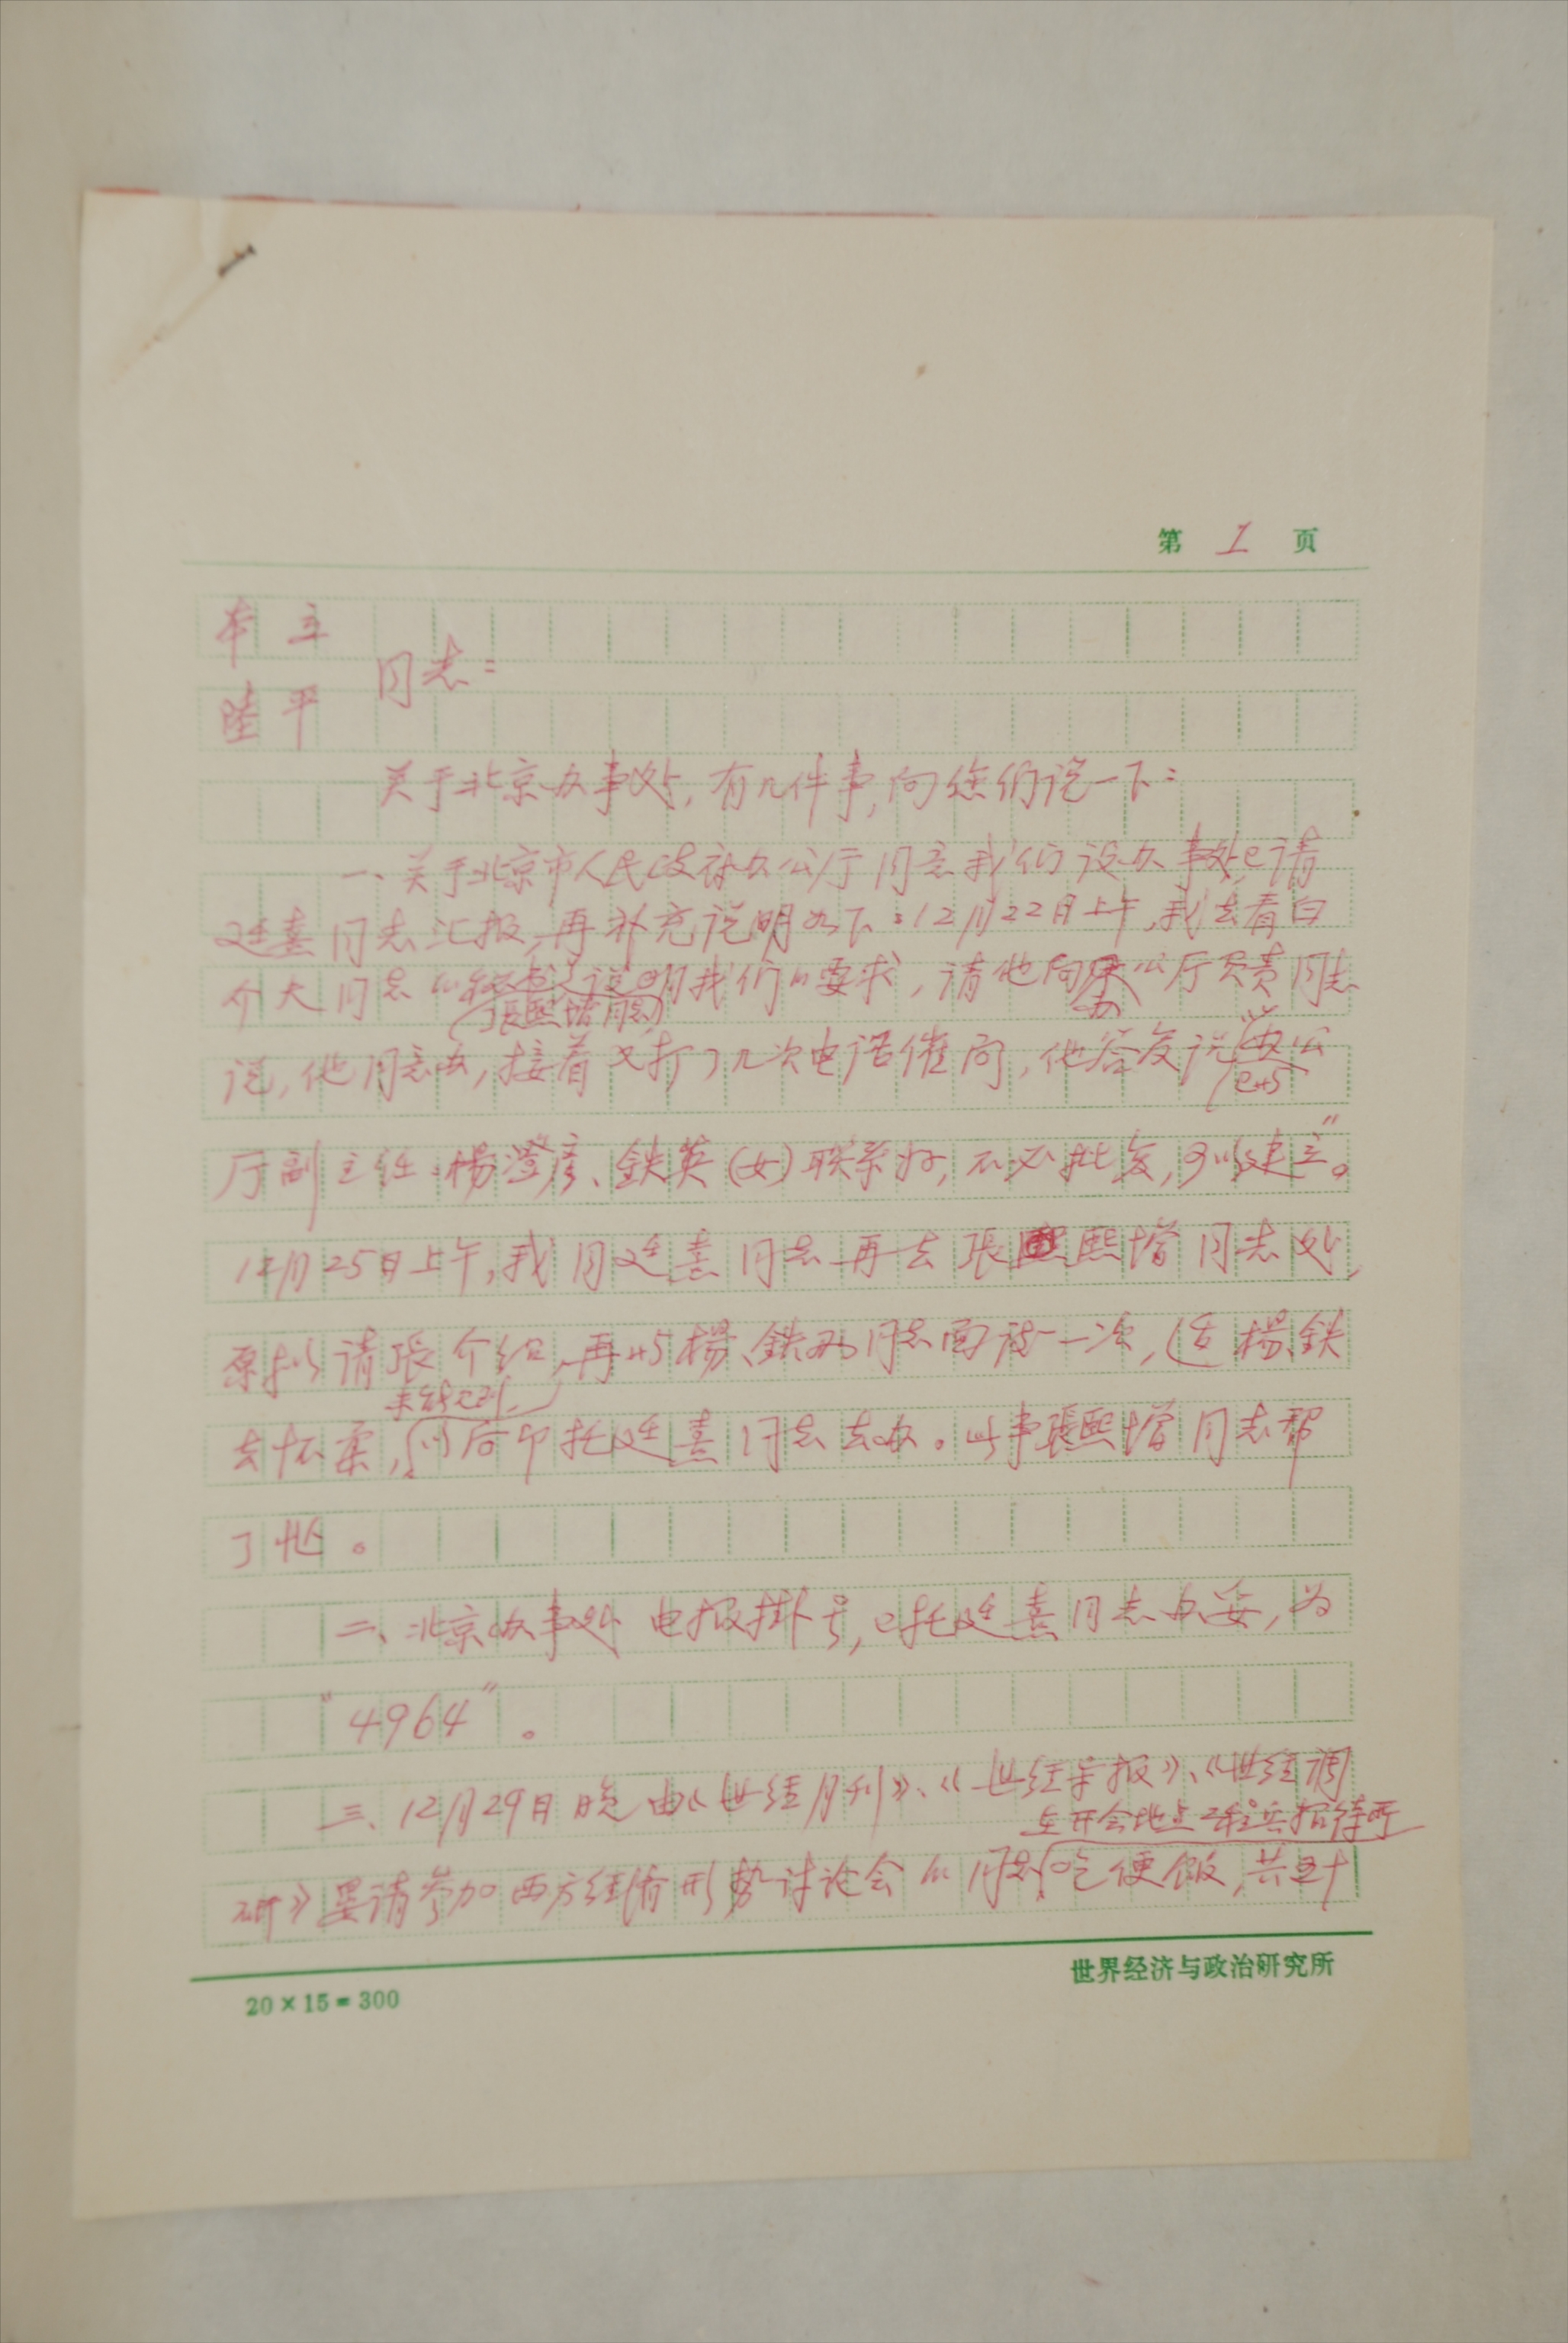 第 1 页
本立
同志：
陆平
关于北京办事处，有几件事，向您们说一下：
一、关于北京市人民政府办公厅同意我们设办事处，已请
廷熹同志汇报，再补充说明如下：12月22日上午，我去看白
介夫同志的秘书，说明我们的要求，请他向办公厅负责同志
（張熙增同志）
说，他同意办，接着又打了几次电话催问，他答复说“办公
已与
厅副主任：楊澄彦、鉄英（女）联系好，不必批复，可以建立”。
12月25日上午，我同廷熹同志再去張熙增同志处，
原拟请張介绍，再与楊、鉄两同志面谈一次，适楊、鉄
未能见到，
去怀柔，以后即托廷熹同志去办。此事張熙增同志帮
了忙。
二、北京办事处电报掛号，已托廷熹同志办妥，为
“4964”。
三、12月29日晚由《世经月刊》、《世经导报》、《世经调
在开会地点工程兵招待所
研》宴请参加西方经济形势讨论会的同志吃便饭，共五十
20×15=300
世界经济与政治研究所